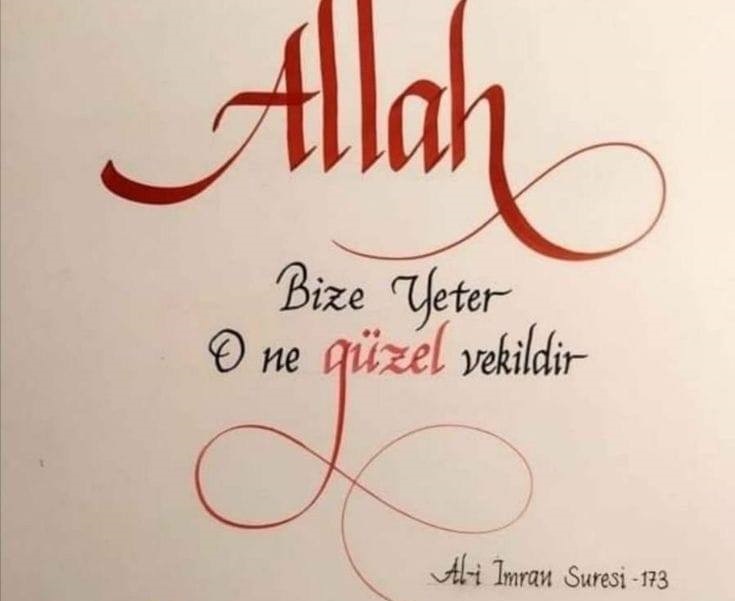 Allah
Bize Yeter
O ne güzel vekildir
Al-i İmran Suresi - 173